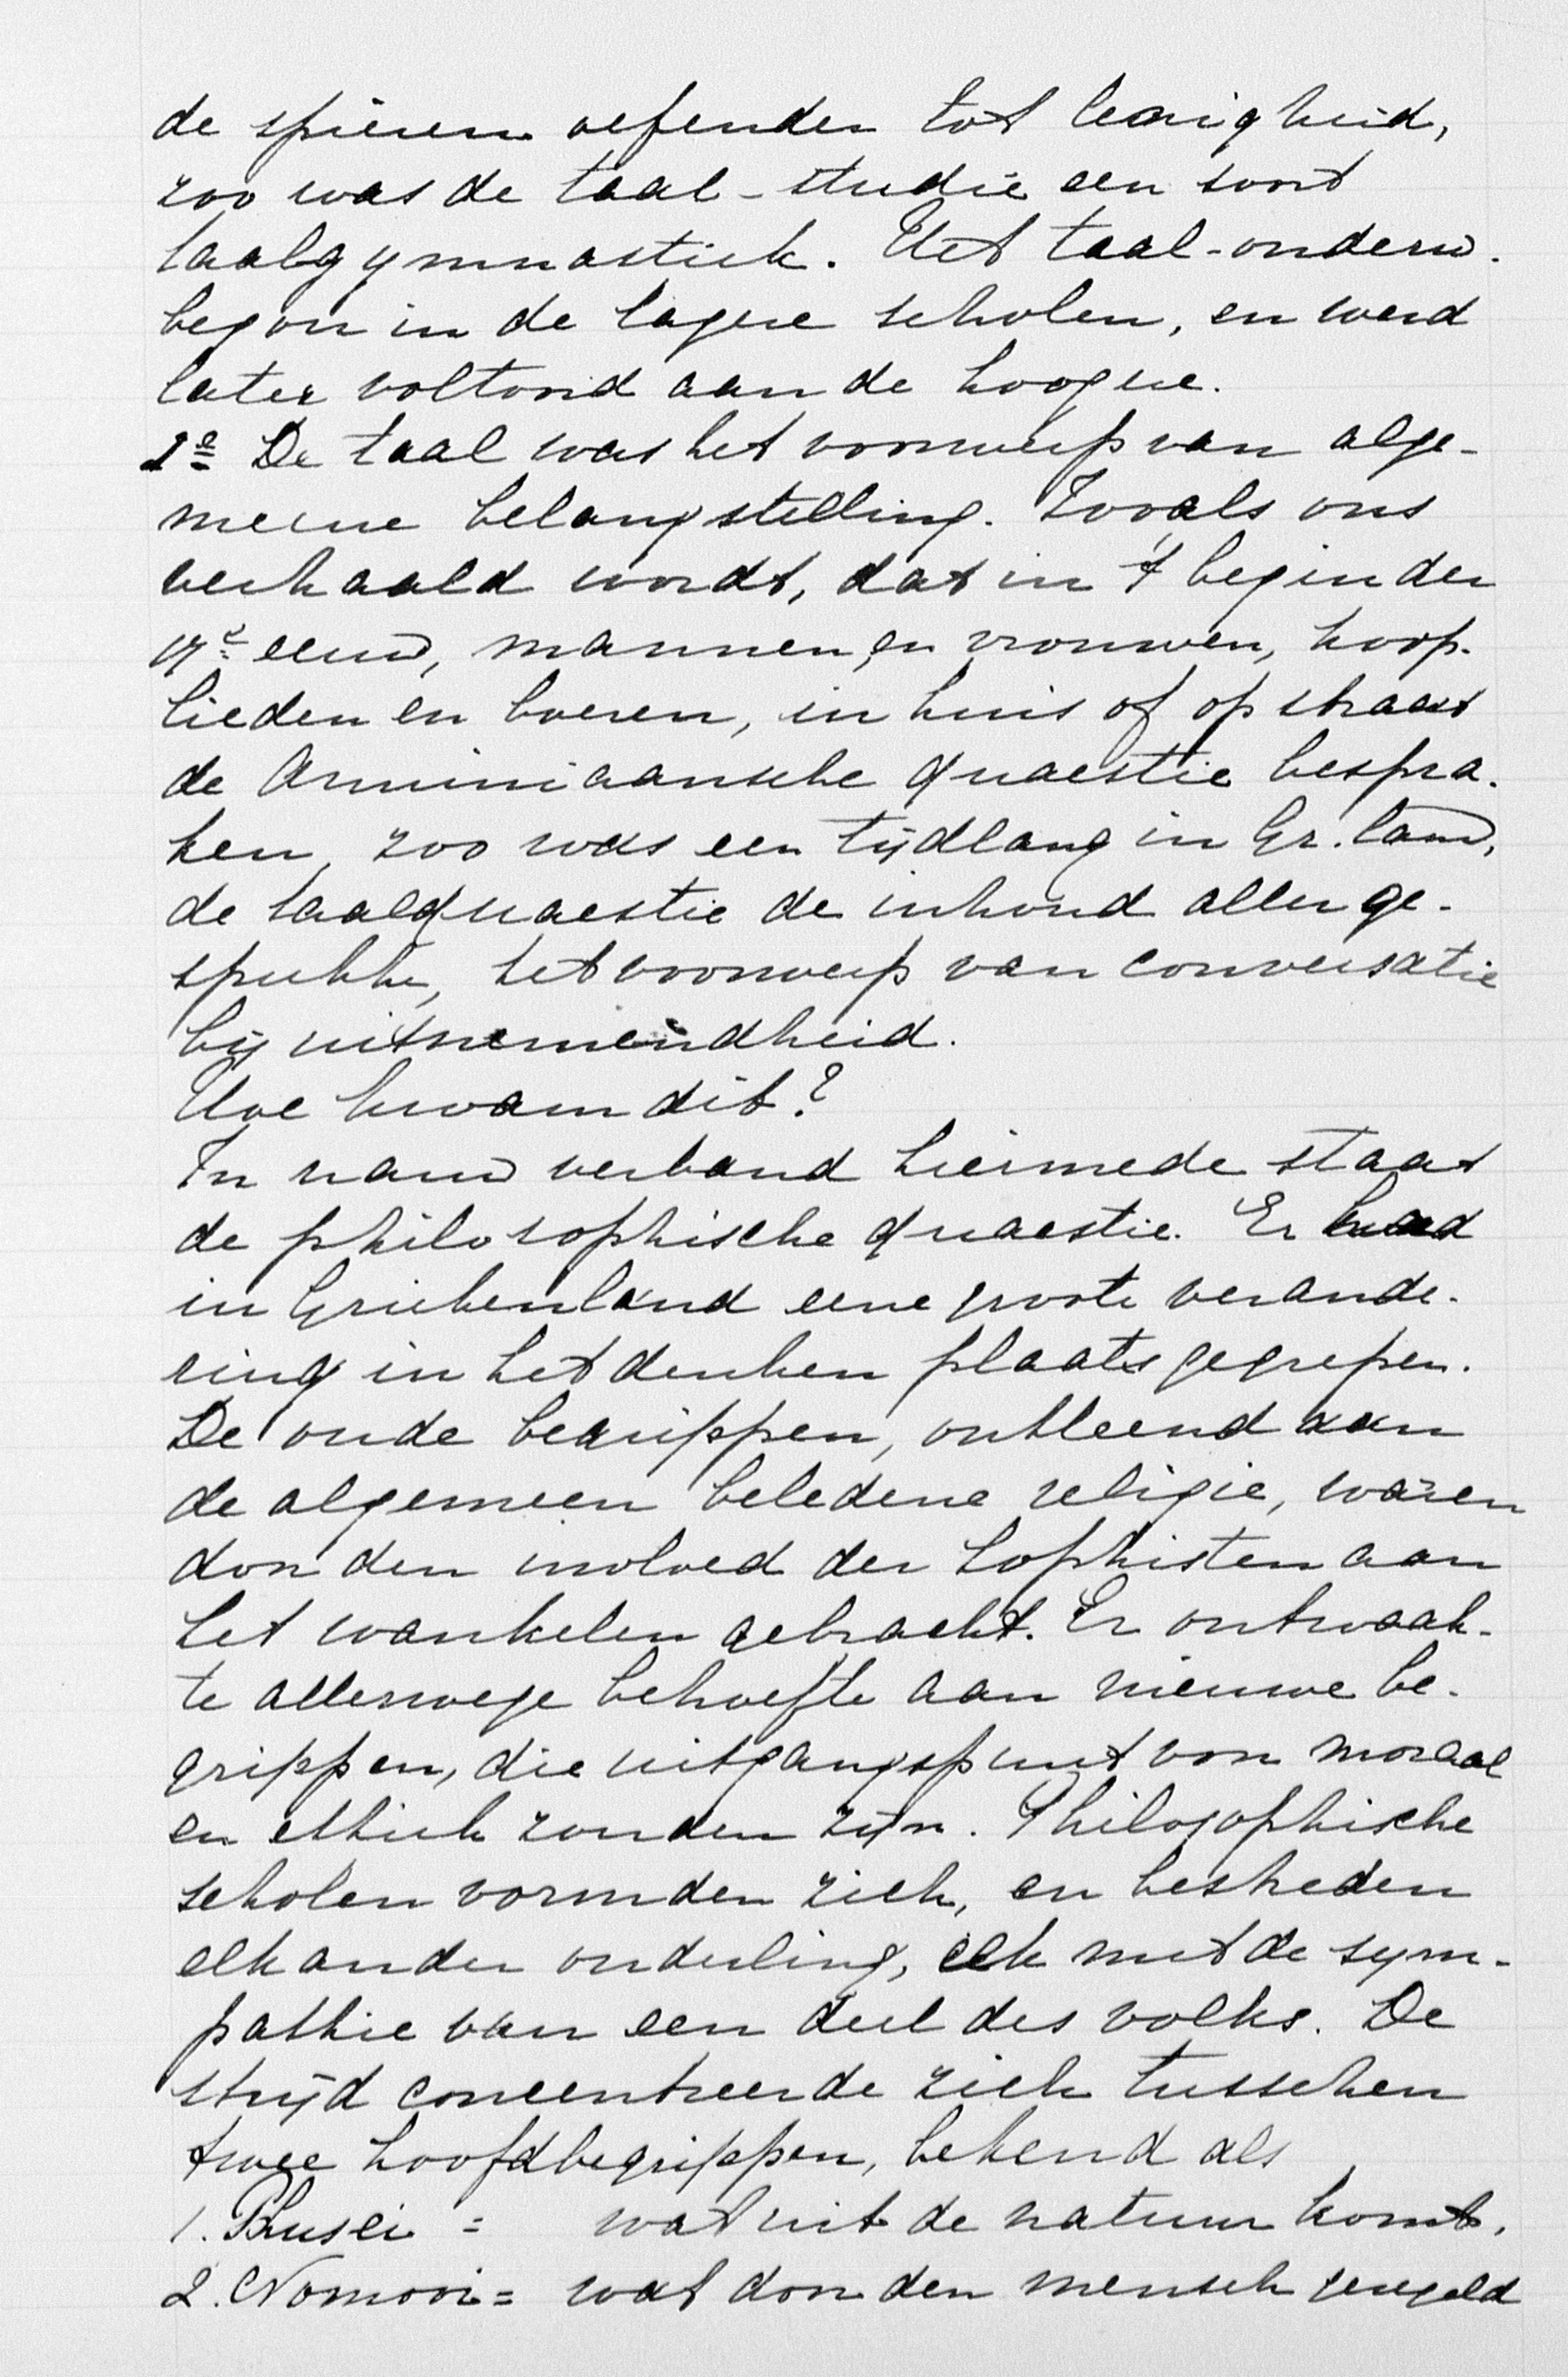 de spieren oefenden tot lenigheid,
zoo was de taal-studie een soort
taalgymnastiek. Het taal-onderw.
begon in de lagere scholen, en werd
later voltooid aan de hoogere.
1e De taal was het voorwerp van alge-
meene belangstelling. Zooals ons
verhaald wordt, dat in 't begin der
17e eeuw, mannen en vrouwen, koop-
lieden en boeren, in huis of op straat
de Arminiaansche quaestie bespra-
ken, zoo was een tijdlang in Gr.land,
de taalquaestie de inhoud aller ge-
sprekken, het voorwerp van conversatie
bij uitnemendheid.
Hoe kwam dit?
In nauw verband hiermede staat
de philosophische quaestie. Er had
in Griekenland eene groote verande-
ring in het denken plaats gegrepen.
De oude begrippen, ontleend aan
de algemeen beledene religie, waren
door den invloed der Sophisten aan
het wankelen gebracht. Er ontwaak-
te allerwege behoefte aan nieuwe be-
grippen, die uitgangspunt voor moraal
en ethiek zouden zijn. Philosophische
scholen vormden zich, en bestreden
elkander onderling, elk met de sym-
pathie van een deel des volks. De
strijd concentreerde zich tusschen
twee hoofdbegrippen, bekend als
1. Phusei = wat uit de natuur komt,
2. Nomooi = wat door den mensch geregeld